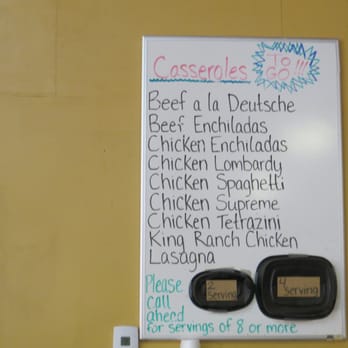 Casseroles TO
GO!!!
Beef a la Deutsche
Beef Enchiladas
Chicken Enchiladas
Chicken Lombardy
Chicken Spaghetti
Chicken Supreme
Chicken Tetrazini
King Ranch Chicken
Lasagna
2
serving
4
serving
Please
call
ahead
for servings of 8 or more